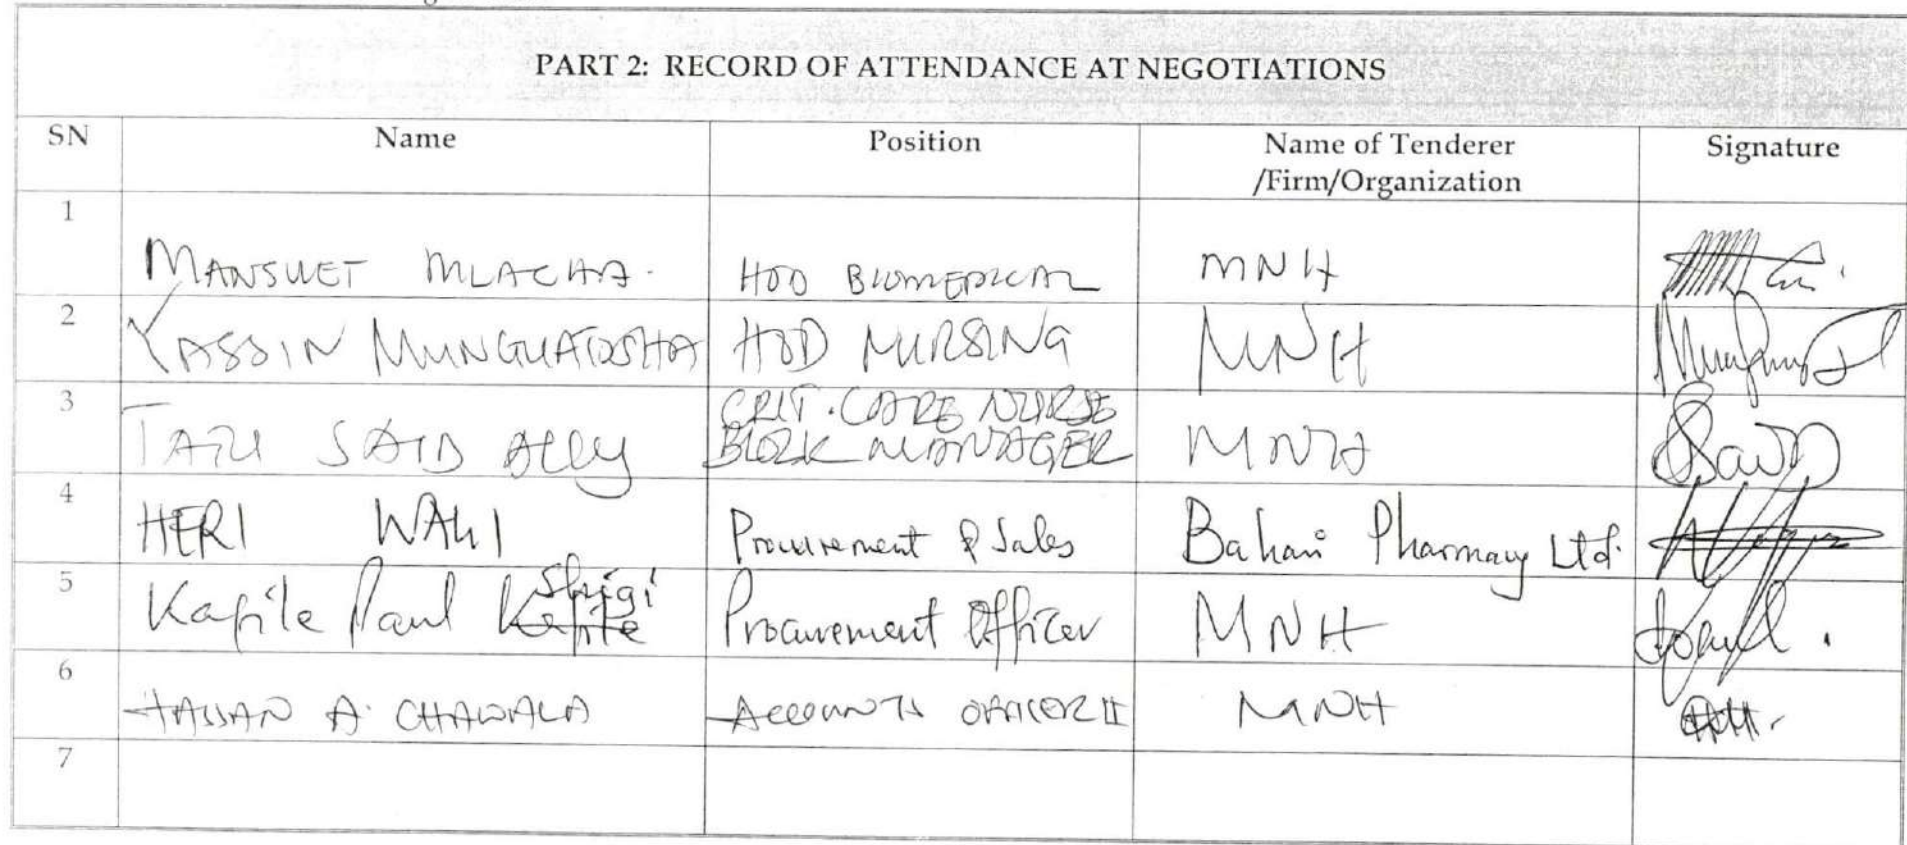 PART 2: RECORD OF ATTENDANCE AT NEGOTIATIONS
SN Name Position Name of Tenderer /Firm/Organization Signature
1 MANSUET MLACHA. HOD BIOMEDICAL MNH
2 YASSIN MUNGUATOSHA HOD NURSING MNH
3 TATU SAID ALLY CRIT. CARE NURSE BLOCK MANAGER MNH
4 HERI WALI Procurement & Sales Bahari Pharmacy Ltd.
5 Kapile Paul Kapile Shigi Procurement Officer MNH
6 HASSAN A. CHAWALA ACCOUNTS OFFICER II MNH
7